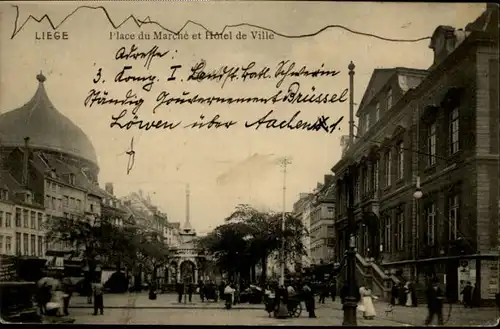 LIEGE
Place du Marché et Hôtel de Ville
Adresse:
3. Komp. I Landst. Batl. Schwerin
Ständig Gouvernement Brüssel
Löwen über Aachen 1.